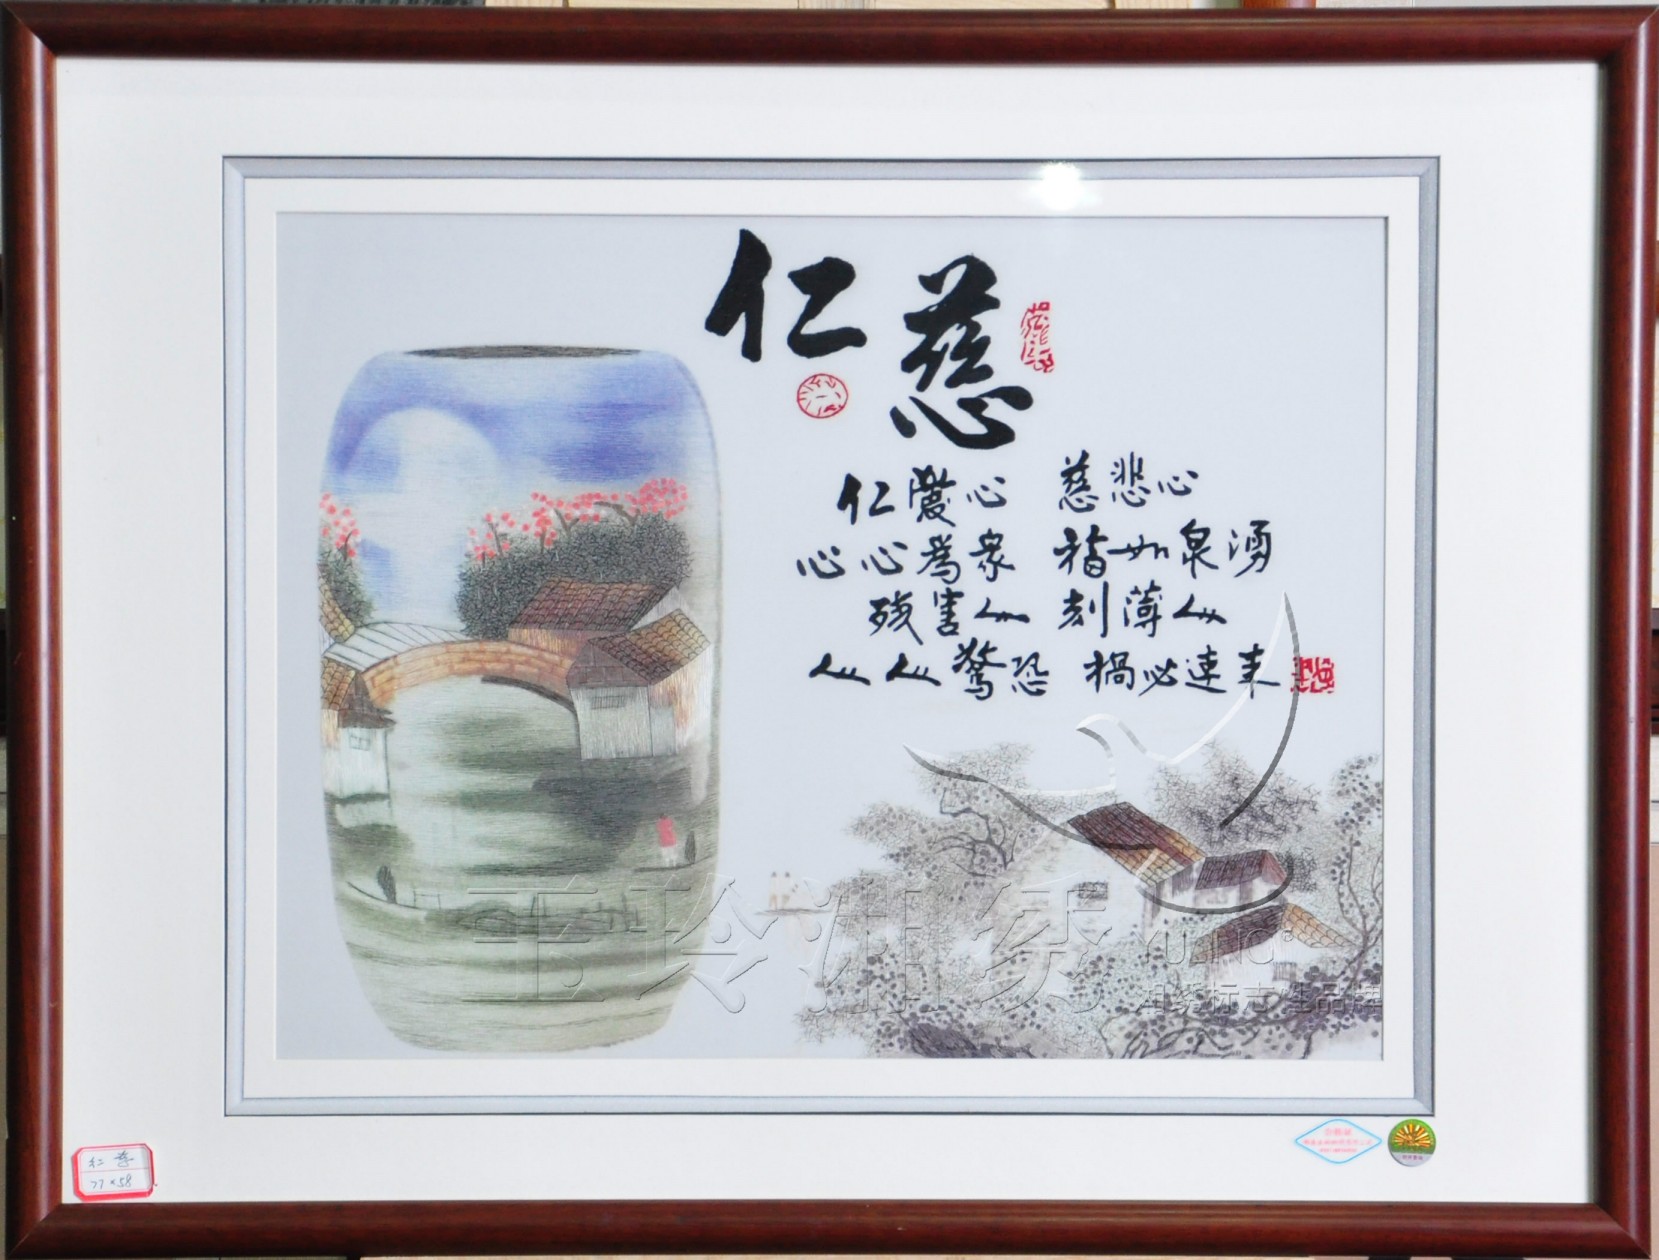 仁慈
仁愛心 慈悲心
心心為眾 福如泉湧
殘害人 刻薄人
人人驚恐 禍必速來
玉玲湘绣
湘绣标志性品牌
仁慈
77×58